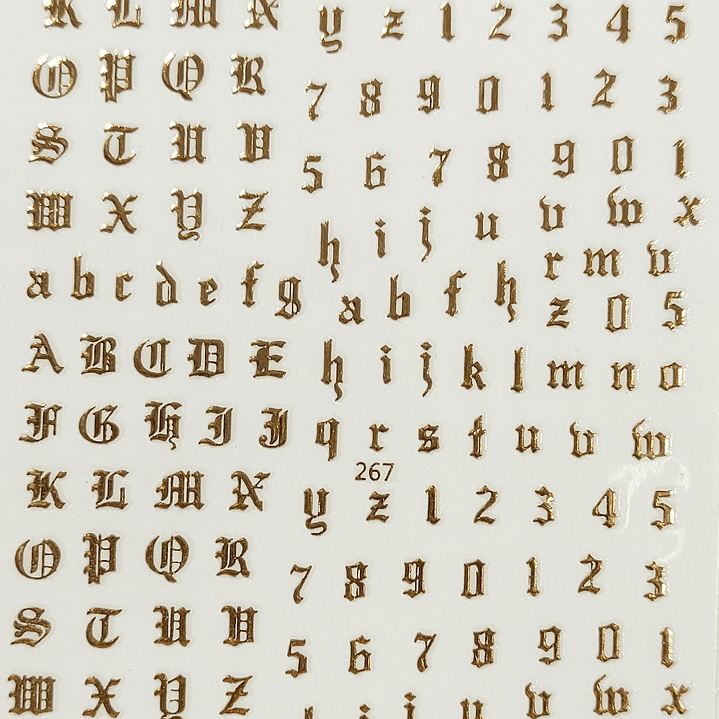 K L M N y z 1 2 3 4 5
O P Q R 7 8 9 0 1 2 3
S T U V 5 6 7 8 9 0 1
W X Y Z h i j u v w x
r m v
a b c d e f g a b f h z 0 5
A B C D E h i j k l m n o
F G H I J q r s t u v w
267
K L M N y z 1 2 3 4 5
O P Q R 7 8 9 0 1 2 3
S T U V 5 6 7 8 9 0 1
W X Y Z h i j u v w x